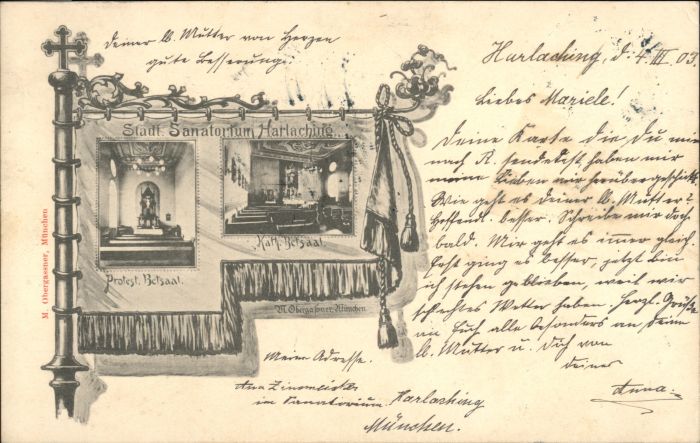 Deiner lb. Mutter von Herzen
gute Besserung.
Harlaching, d. 4. III 03.
Liebes Mariele!
Deine Karte die Du mir
nach A. sendetest haben mir
meine Lieben mir herübergeschickt.
Wie geht es Deiner lb. Mutter?
Hoffentl. besser. Schreibe mir doch
bald. Mir geht es immer gleich
Erst ging es besser, jetzt bin
ich stehen geblieben, weil wir
schlechtes Wetter haben. Herzl. Grüße
an Euch alle besonders an Deine
lb. Mutter u. Dich von
Deiner
Anna.
Städt. Sanatorium Harlaching.
Protest. Betsaal.
Kath. Betsaal.
M. Obergassner, München
M. Obergassner, München
Meine Adresse.
Anna Zinsmeister
im Sanatorium Harlaching
München.